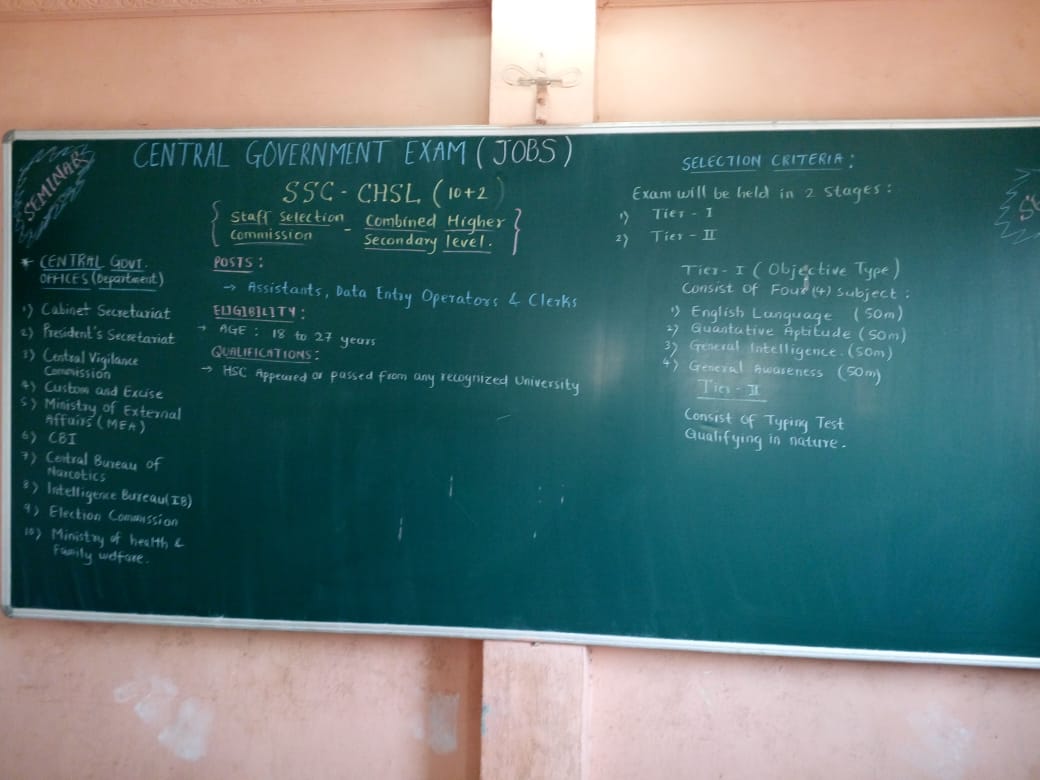 SEMINAR
CENTRAL GOVERNMENT EXAM (JOBS)
SSC - CHSL (10+2)
{ Staff Selection - Combined Higher }
Commission Secondary level.
* CENTRAL GOVT.
OFFICES (Department)
1) Cabinet Secretariat
2) President's Secretariat
3) Central Vigilance
Commission
4) Custom and Excise
5) Ministry of External
Affairs (MEA)
6) CBI
7) Central Bureau of
Narcotics
8) Intelligence Bureau (IB)
9) Election Commission
10) Ministry of health &
Family welfare.
POSTS :
→ Assistants, Data Entry Operators & Clerks
ELIGIBILITY :
→ AGE : 18 to 27 years
QUALIFICATIONS :
→ HSC Appeared or passed from any recognized University
SELECTION CRITERIA :
Exam will be held in 2 stages :
1) Tier - I
2) Tier - II
Tier - I (Objective Type)
Consist of Four (4) subject :
1) English Language (50m)
2) Quantative Aptitude (50m)
3) General Intelligence. (50m)
4) General Awareness (50m)
Tier - II
Consist of Typing Test
Qualifying in nature.